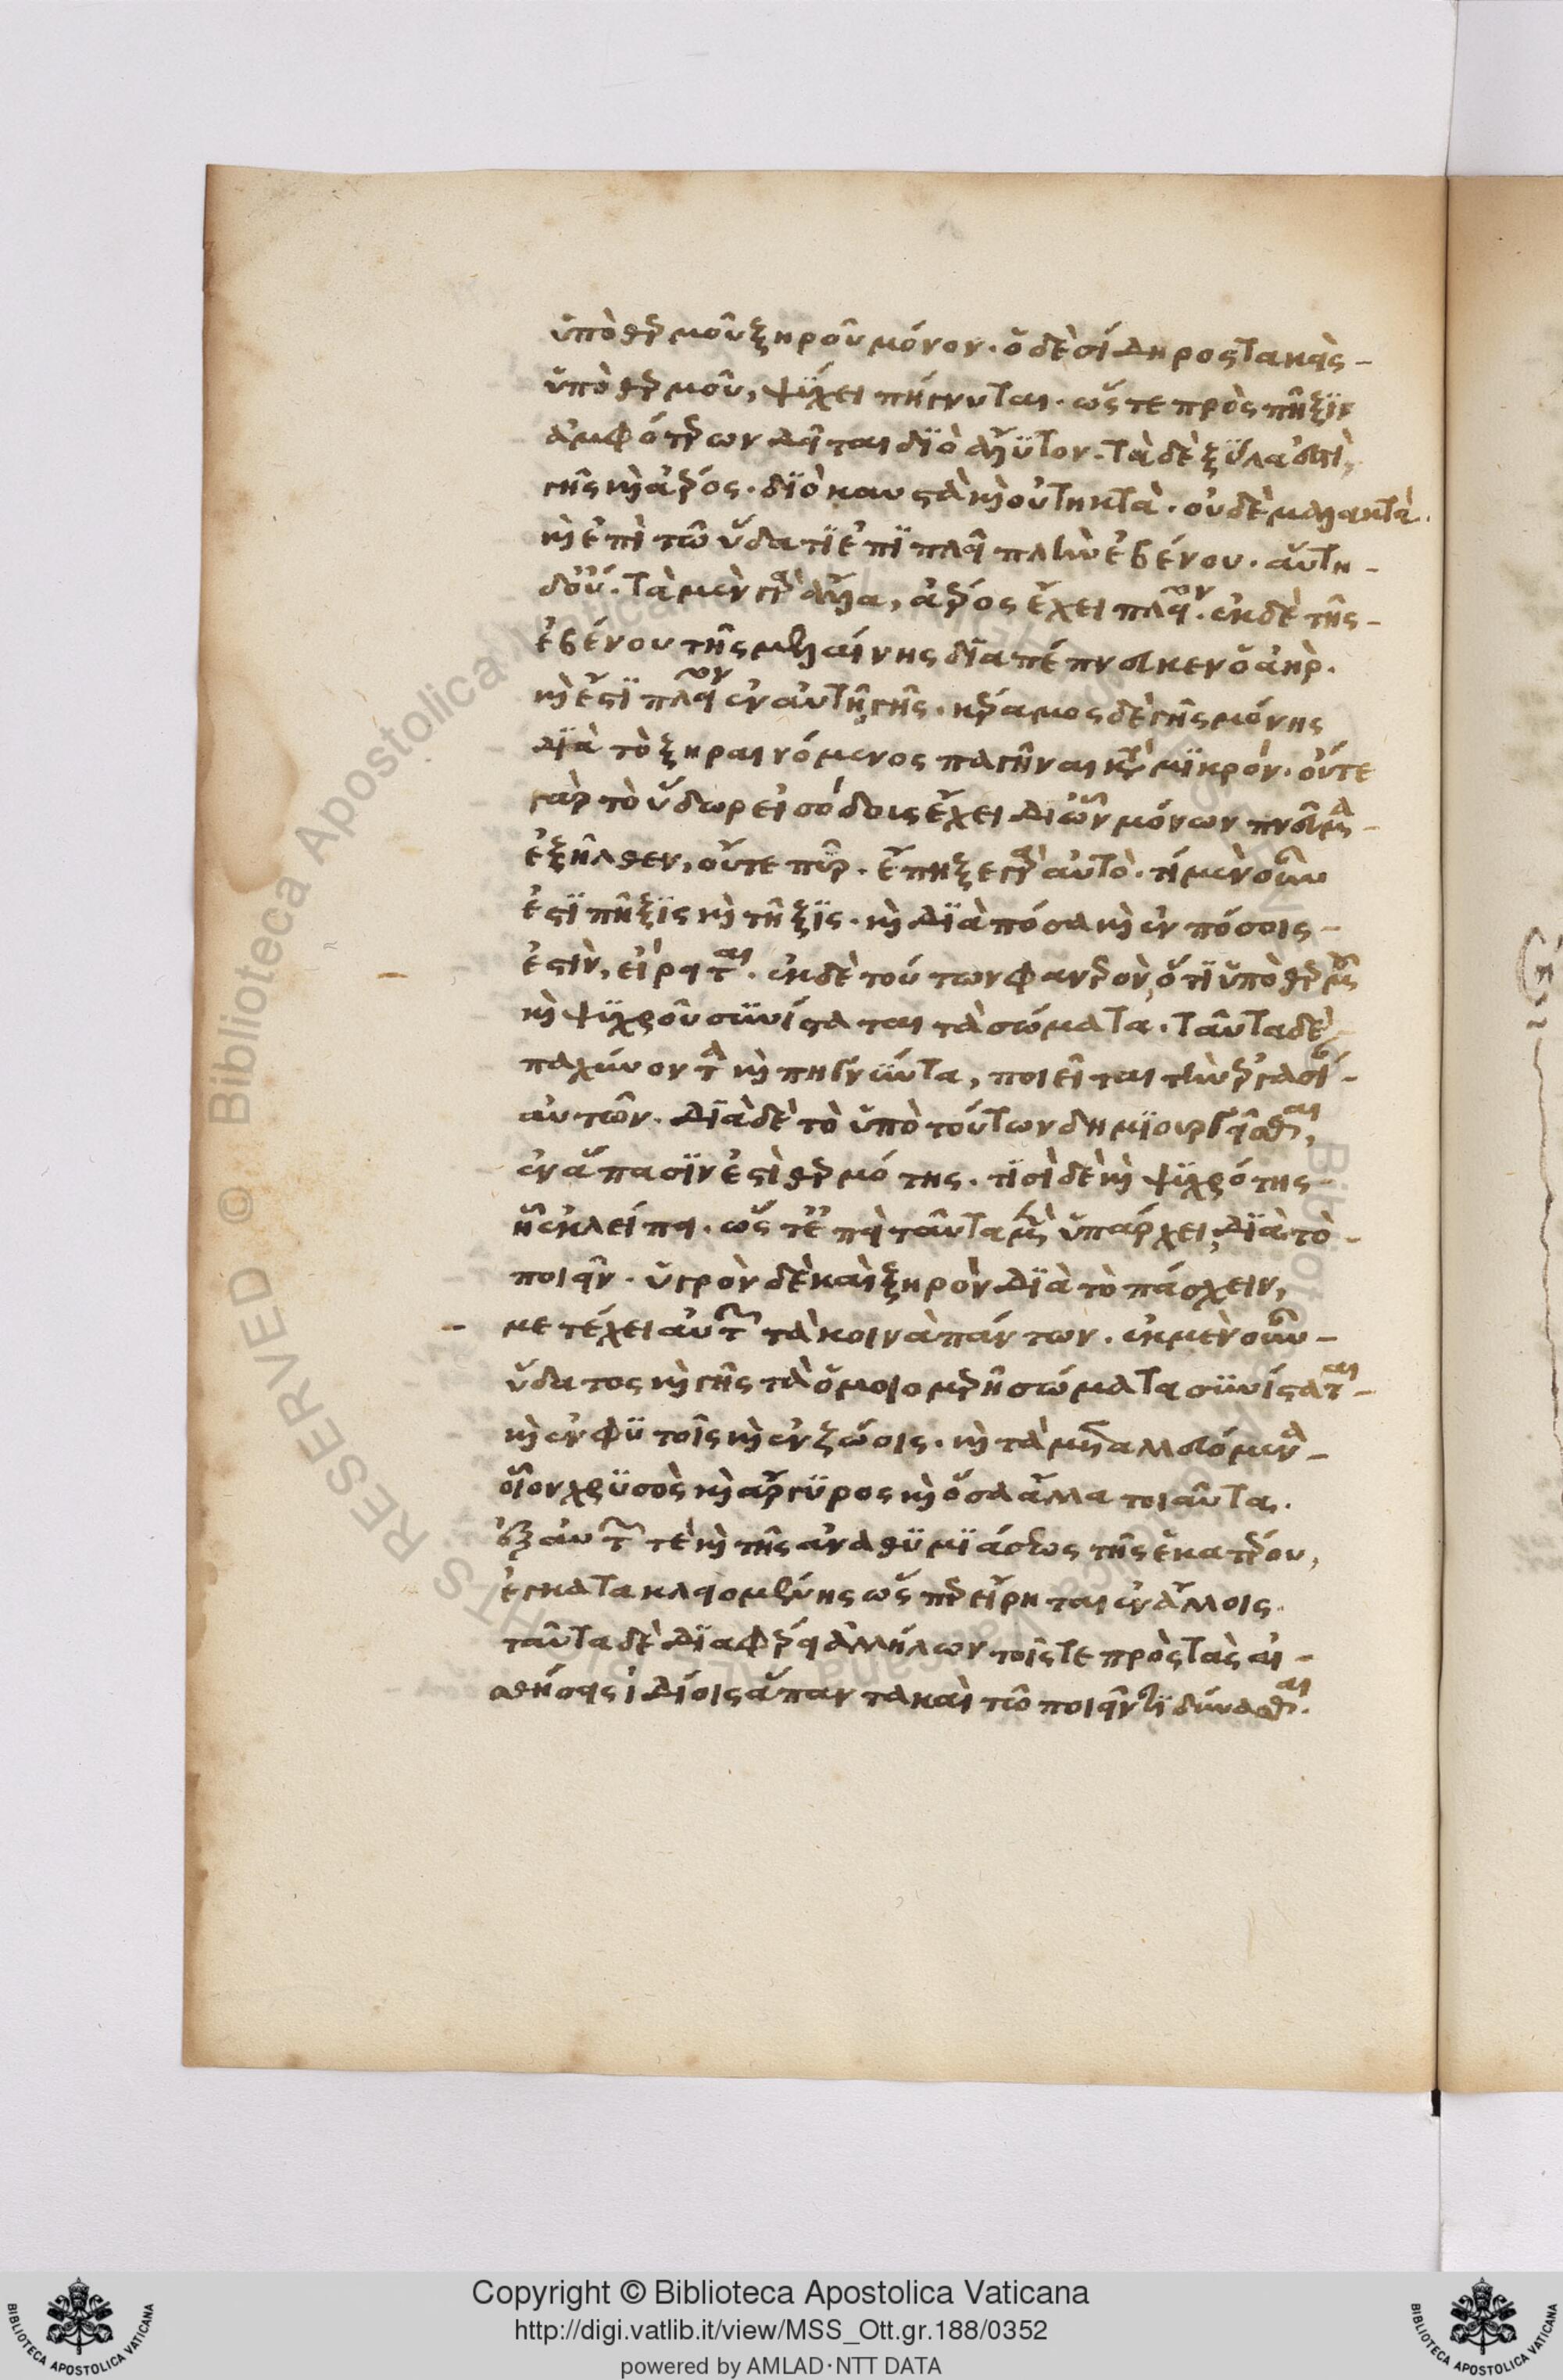 ὑπὸ θερμοῦ ξηροῦ μόνον. ὁ δὲ σίδηρος τακεὶς
ὑπὸ θερμοῦ, ψύχει πήγνυται. ὥστε πρὸς πῆξιν
ἀμφότερων δεῖται διὸ δύϋτον. τὰ δὲ ξύλα ἐστὶ,
γῆς καὶ ἀέρος. διὸ καυστὰ καὶ οὐ τηκτὰ. οὐδὲ μαλακτὰ.
καὶ ἐπὶ τῶ ὕδατι ἐπιπλεῖ πλὴν ἐβένου. αὕτη
δ' οὔ. τὰ μὲν γὰρ ἄλλα, ἀέρος ἔχει πλεῖον. ἐκ δὲ τῆς
ἐβένου τῆς μελαίνης διαπέπνευκεν ὁ ἀὴρ.
καὶ ἔστι πλεῖον ἐν αὐτῆ γῆς. κέραμος δὲ γῆς μόνης
διὰ τὸ ξηραινόμενος παγῆναι κατὰ μικρόν. οὔτε
γὰρ τὸ ὕδωρ εἰσόδοις ἔχει δι' ὧν μόνων πνεῦμα
ἐξῆλθεν, οὔτε πῦρ. ἔπηξε γὰρ αὐτὸ. τί μὲν οὖν
ἐστὶ πῆξις καὶ τῆξις. καὶ διὰ πόσα καὶ ἐν πόσοις
ἐστὶν, εἴρηται. ἐκ δὲ τούτων φανερὸν, ὅτι ὑπὸ θερμοῦ
καὶ ψυχροῦ συνίσταται τὰ σώματα. ταῦτα δὲ
παχύνοντα καὶ πηγνύντα, ποιεῖται τὴν ἐργασίαν
αὐτῶν. διὰ δὲ τὸ ὑπὸ τούτων δημιουργεῖσθαι,
ἐν ἅπασιν ἐστὶ θερμότης. τισὶ δὲ καὶ ψυχρότης
ἧ ἐκλείπει. ὥστ' ἐπεὶ ταῦτα μὲν ὑπάρχει, διὰ τὸ
ποιεῖν. ὑγρὸν δὲ καὶ ξηρὸν διὰ τὸ πάσχειν,
μετέχει αὐτῶν τὰ κοινὰ πάντων. ἐκ μὲν οὖν
ὕδατος καὶ γῆς τὰ ὁμοιομερῆ σώματα συνίσταται
καὶ ἐν φυτοῖς καὶ ἐν ζώοις. καὶ τὰ μεταλλευόμενα
οἷον χρυσὸς καὶ ἄργυρος καὶ ὅσα ἄλλα τοιαῦτα.
ἐξ αὐτῶν τε καὶ τῆς ἀναθυμιάσεως τῆς ἑκατέρου,
ἐγκατακλειομένης ὥσπερ εἴρηται ἐν ἄλλοις.
ταῦτα δὲ διαφέρει ἀλλήλων τοῖς τε πρὸς τὰς αἰ
σθήσεις ἰδίοις ἅπαντα καὶ τῶ ποιεῖν τι δύνασθαι.
Copyright © Biblioteca Apostolica Vaticana
http://digi.vatlib.it/view/MSS_Ott.gr.188/0352
powered by AMLAD·NTT DATA